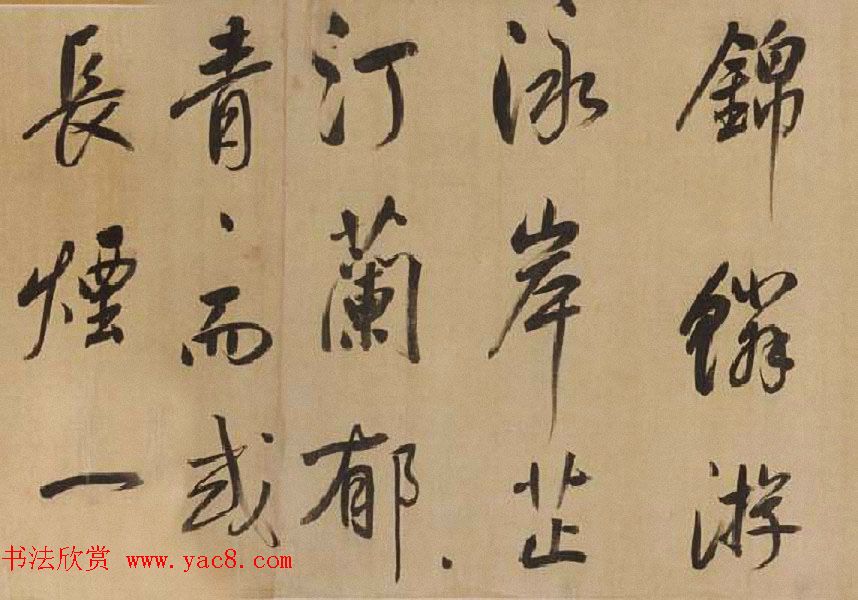 錦鱗游
泳岸芷
汀蘭郁、
青、而或
長煙一
书法欣赏 www.yac8.com